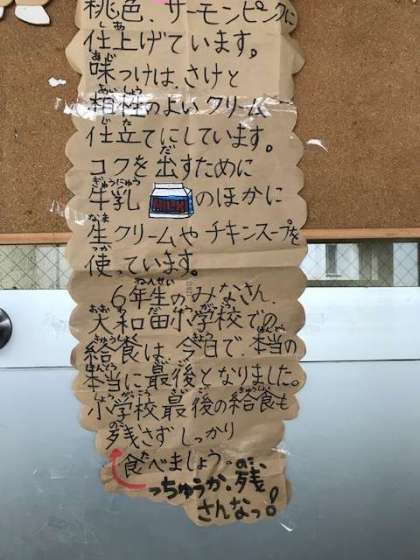 桃色、サーモンピンクに
仕上げています。
味つけは、さけと
相性のよいクリーム
仕立てにしています。
コクを出すために
牛乳 MILK のほかに
生クリームやチキンスープを
使っています。
6年生のみなさん、
大和田小学校での
給食は、今日で本当の
本当に最後となりました。
小学校最後の給食も
残さずしっかり
食べましょう。
っちゅうか、残
さんなっ!